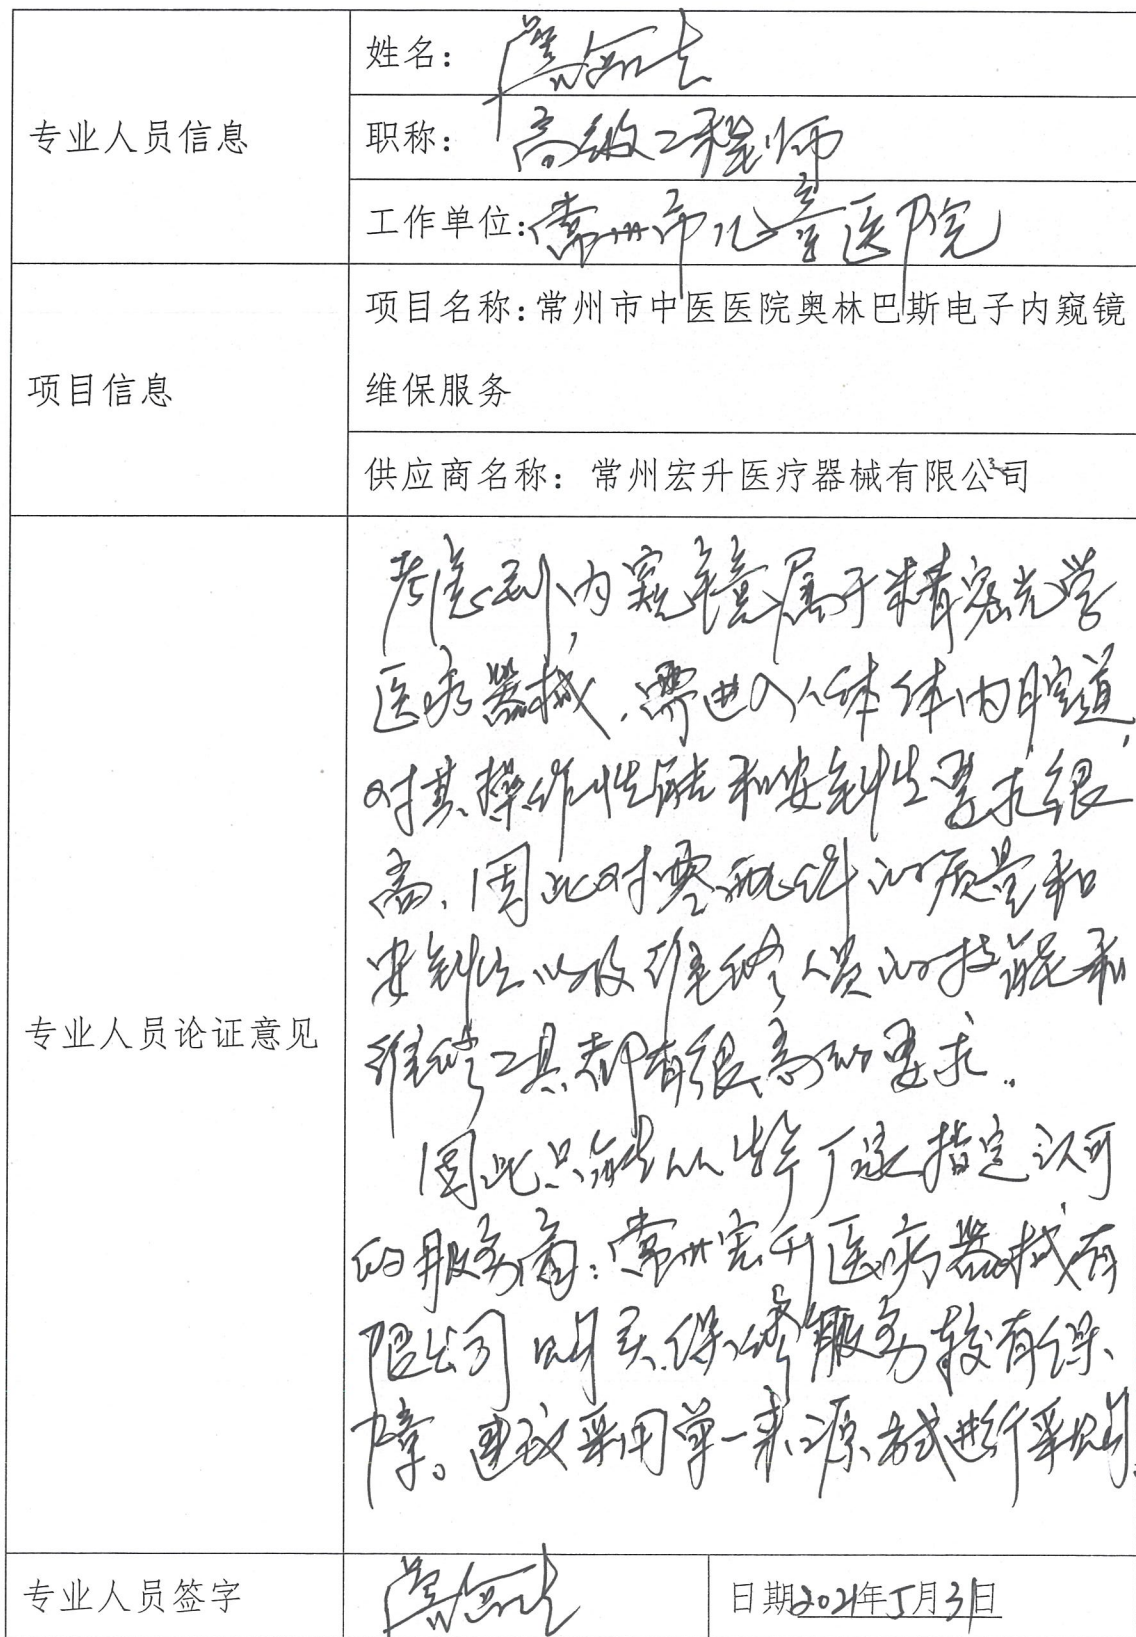 专业人员信息
姓名：
职称： 高级工程师
工作单位：常州市儿童医院
项目信息
项目名称：常州市中医医院奥林巴斯电子内窥镜
维保服务
供应商名称：常州宏升医疗器械有限公司
专业人员论证意见
考虑到内窥镜属于精密光学
医疗器械，需进入人体体内腔道，
对其操作性能和安全性要求很
高，因此对零配件的质量和
安全性以及维修人员的技能和
维修工具都有很高的要求。
因此只能从 厂家指定认可
的服务商：常州宏升医疗器械有
限公司购买保修服务较有保
障。建议采用单一来源方式进行采购。
专业人员签字
日期2021年5月31日